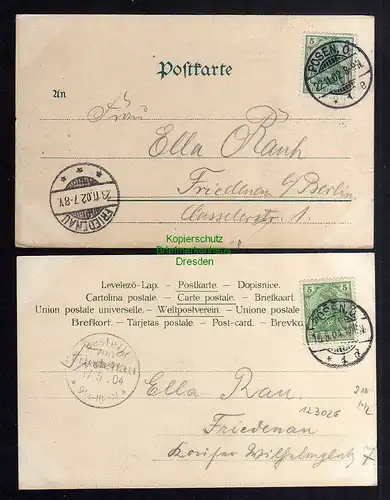 Postkarte
An
Frau
Ella Rauh
Friedenau b/Berlin
Casselerstr. 1.
5
POSEN. O.
22.11.02.
* 1 e
* * *
23.11.02.7-8V.
FRIEDENAU
Kopierschutz
Briefmarkenhaus
Dresden
Levelező-Lap. — Postkarte. — Dopisnice.
Cartolina postale. — Carte postale. — Briefkaart.
Union postale universelle. — Weltpostverein. — Unione postale
Brefkort. — Tarjetas postale. — Post-card. — Brevko
5
POSEN. O.
* 1 d
Bestellt
vom
Friedenau
17.5.04
Ella Rau.
Friedenau
123026
Wilhelmplatz 7